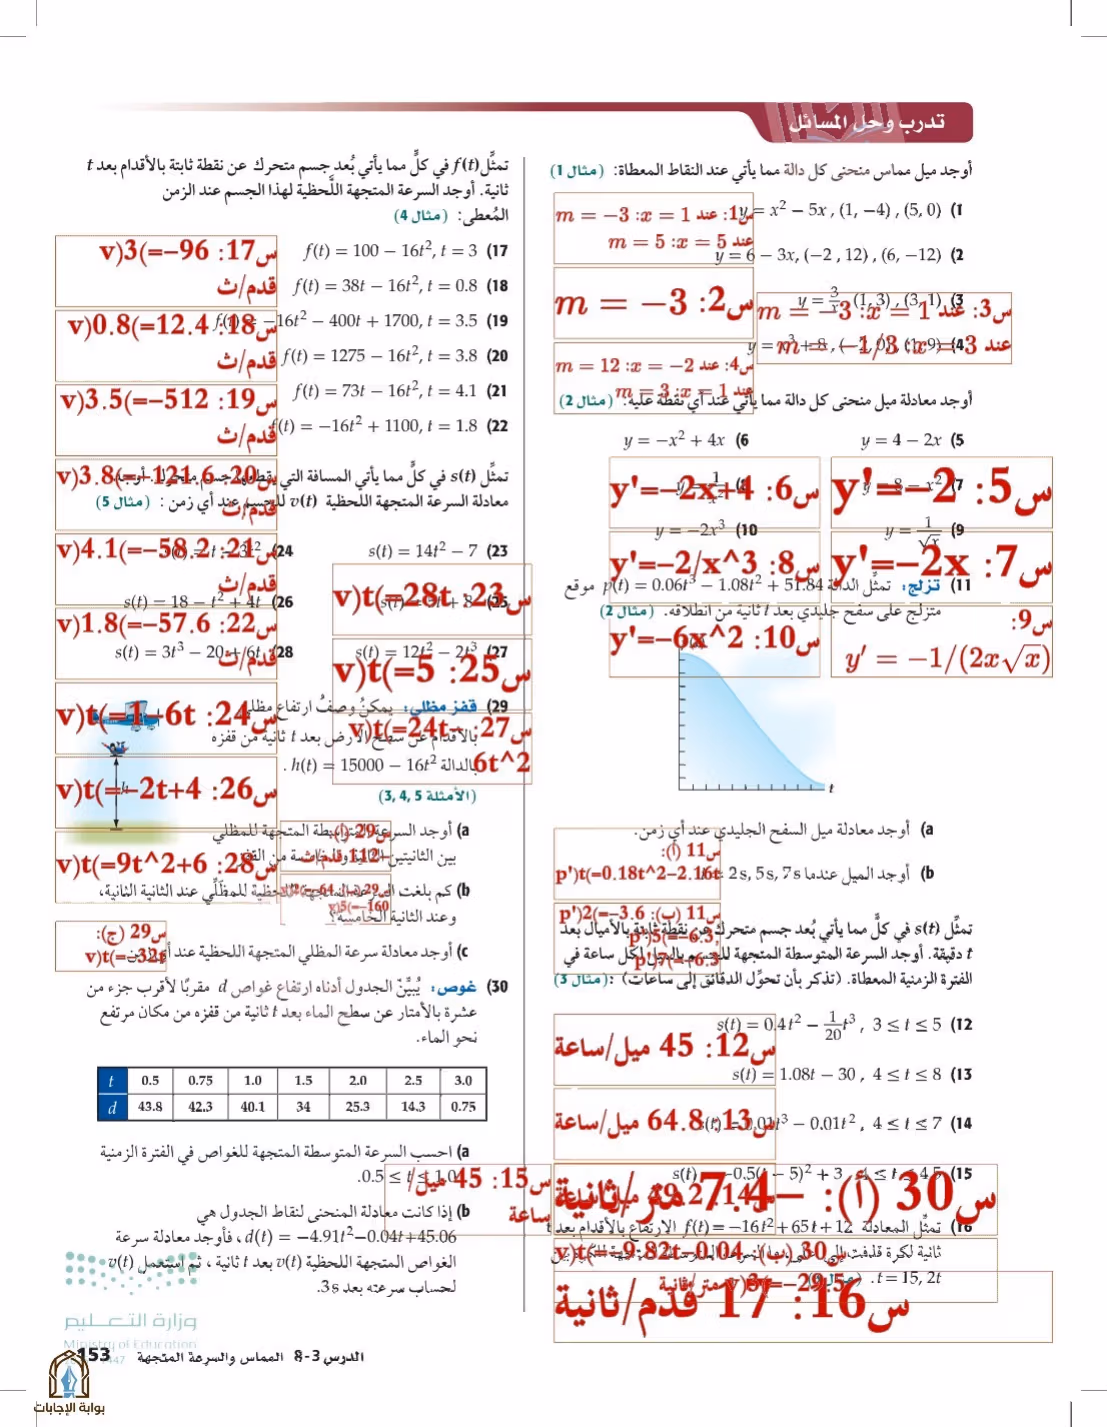 تدرب وحل المسائل
أوجد ميل مماس منحنى كل دالة مما يأتي عند النقاط المعطاة: (مثال 1)
1) y = x² − 5x , (1, −4) , (5, 0)
س1: عند x = 1: m = −3
عند x = 5: m = 5
2) y = 6 − 3x, (−2 , 12) , (6, −12)
س2: m = −3
3) y = 3/x, (1, 3) , (3, 1)
س3: عند x = 1: m = −3
عند x = 3: m = −1/3
س4: عند x = −2: m = 12
عند x = 1: m = 3
أوجد معادلة ميل منحنى كل دالة مما يأتي عند أي نقطة عليه: (مثال 2)
5) y = 4 − 2x
6) y = −x² + 4x
س5: y'=−2
س6: y'=−2x+4
7) y = 8 − x²
9) y = 1/√x
10) y = −2x³
س7: y'=−2x
س8: y'=−2/x^3
11) تزلج: تمثل الدالة p(t) = 0.06t³ − 1.08t² + 51.84 موقع
متزلج على سفح جليدي بعد t ثانية من انطلاقه. (مثال 2)
س9:
y′ = −1/(2x√x)
س10: y'=−6x^2
t
a) أوجد معادلة ميل السفح الجليدي عند أي زمن.
س11 (أ):
p')t(=0.18t^2−2.16t
b) أوجد الميل عندما 2s, 5s, 7s
س11 (ب): p')2(=−3.6
p')5(=−6.3,
p')7(=−6.3
تمثِّل s(t) في كلٍّ مما يأتي بُعد جسم متحرك عن نقطة ثابتة بالأميال بعد
t دقيقة. أوجد السرعة المتوسطة المتجهة للجسم بالميل لكل ساعة في
الفترة الزمنية المعطاة. (تذكر بأن تحوِّل الدقائق إلى ساعات) : (مثال 3)
12) s(t) = 0.4t² − 1/20 t³ , 3 ≤ t ≤ 5
س12: 45 ميل/ساعة
13) s(t) = 1.08t − 30 , 4 ≤ t ≤ 8
س13: 64.8 ميل/ساعة
14) s(t) = 0.01t³ − 0.01t² , 4 ≤ t ≤ 7
15) s(t) = −0.5(t − 5)² + 3 , 4 ≤ t ≤ 4.5
س14: 49.2
س15: 45 ميل/
ساعة
16) تمثِّل المعادلة f(t) = −16t² + 65t + 12 الارتفاع بالأقدام بعد t
t = 15, 2t.
س16: 17 قدم/ثانية
تمثِّل f(t) في كلٍّ مما يأتي بُعد جسم متحرك عن نقطة ثابتة بالأقدام بعد t
ثانية. أوجد السرعة المتجهة اللَّحظية لهذا الجسم عند الزمن
المُعطى: (مثال 4)
17) f(t) = 100 − 16t², t = 3
س17: v)3(=−96
قدم/ث
18) f(t) = 38t − 16t², t = 0.8
س18: v)0.8(=12.4
قدم/ث
19) f(t) = −16t² − 400t + 1700, t = 3.5
20) f(t) = 1275 − 16t², t = 3.8
21) f(t) = 73t − 16t², t = 4.1
س19: v)3.5(=−512
قدم/ث
22) f(t) = −16t² + 1100, t = 1.8
تمثِّل s(t) في كلٍّ مما يأتي المسافة التي يقطعها جسم متحرك. أوجد
معادلة السرعة المتجهة اللحظية v(t) للجسم عند أي زمن : (مثال 5)
س20: v)3.8(=−121.6
قدم/ث
23) s(t) = 14t² − 7
س21: v)4.1(=−58.2
قدم/ث
س23: v)t(=28t
26) s(t) = 18 − t² + 4t
س22: v)1.8(=−57.6
قدم/ث
27) s(t) = 12t² − 2t³
28) s(t) = 3t³ − 20 + 6t
س25: v)t(=5
س24: v)t(=1−6t
29) قفز مظلي: يمكنُ وصفُ ارتفاع مظلي
بالأقدام عن سطح الأرض بعد t ثانية من قفزه
بالدالة h(t) = 15000 − 16t² .
(الأمثلة 3, 4, 5)
س27: v)t(=24t−
6t^2
س26: v)t(=−2t+4
a) أوجد السرعة المتوسطة المتجهة للمظلي
بين الثانيتين الثانية والخامسة من القفز.
س29 (أ):
−112 قدم/ث
س28: v)t(=9t^2+6
b) كم بلغت السرعة المتجهة اللحظية للمظلِّي عند الثانية الثانية،
وعند الثانية الخامسة؟
v)5(=−160
c) أوجد معادلة سرعة المظلي المتجهة اللحظية عند أي زمن.
س29 (ج):
v)t(=−32t
30) غوص: يُبيِّنُ الجدول أدناه ارتفاع غواص d مقربًا لأقرب جزء من
عشرة بالأمتار عن سطح الماء بعد t ثانية من قفزه من مكان مرتفع
نحو الماء.
t 0.5 0.75 1.0 1.5 2.0 2.5 3.0
d 43.8 42.3 40.1 34 25.3 14.3 0.75
a) احسب السرعة المتوسطة المتجهة للغواص في الفترة الزمنية
0.5 ≤ t ≤ 1.0.
س30 (أ): −7.4 متر/ثانية
b) إذا كانت معادلة المنحنى لنقاط الجدول هي
d(t) = −4.91t²−0.04t+45.06، فأوجد معادلة سرعة
الغواص المتجهة اللحظية v(t) بعد t ثانية ، ثم استعمل v(t)
لحساب سرعته بعد 3s.
س30 (ب): v)t(=−9.82t−0.04
v)3(=−29.5 متر/ثانية
وزارة التعليم
Ministry of Education
1447
الدرس 3-8 المماس والسرعة المتجهة 153
بوابة الإجابات